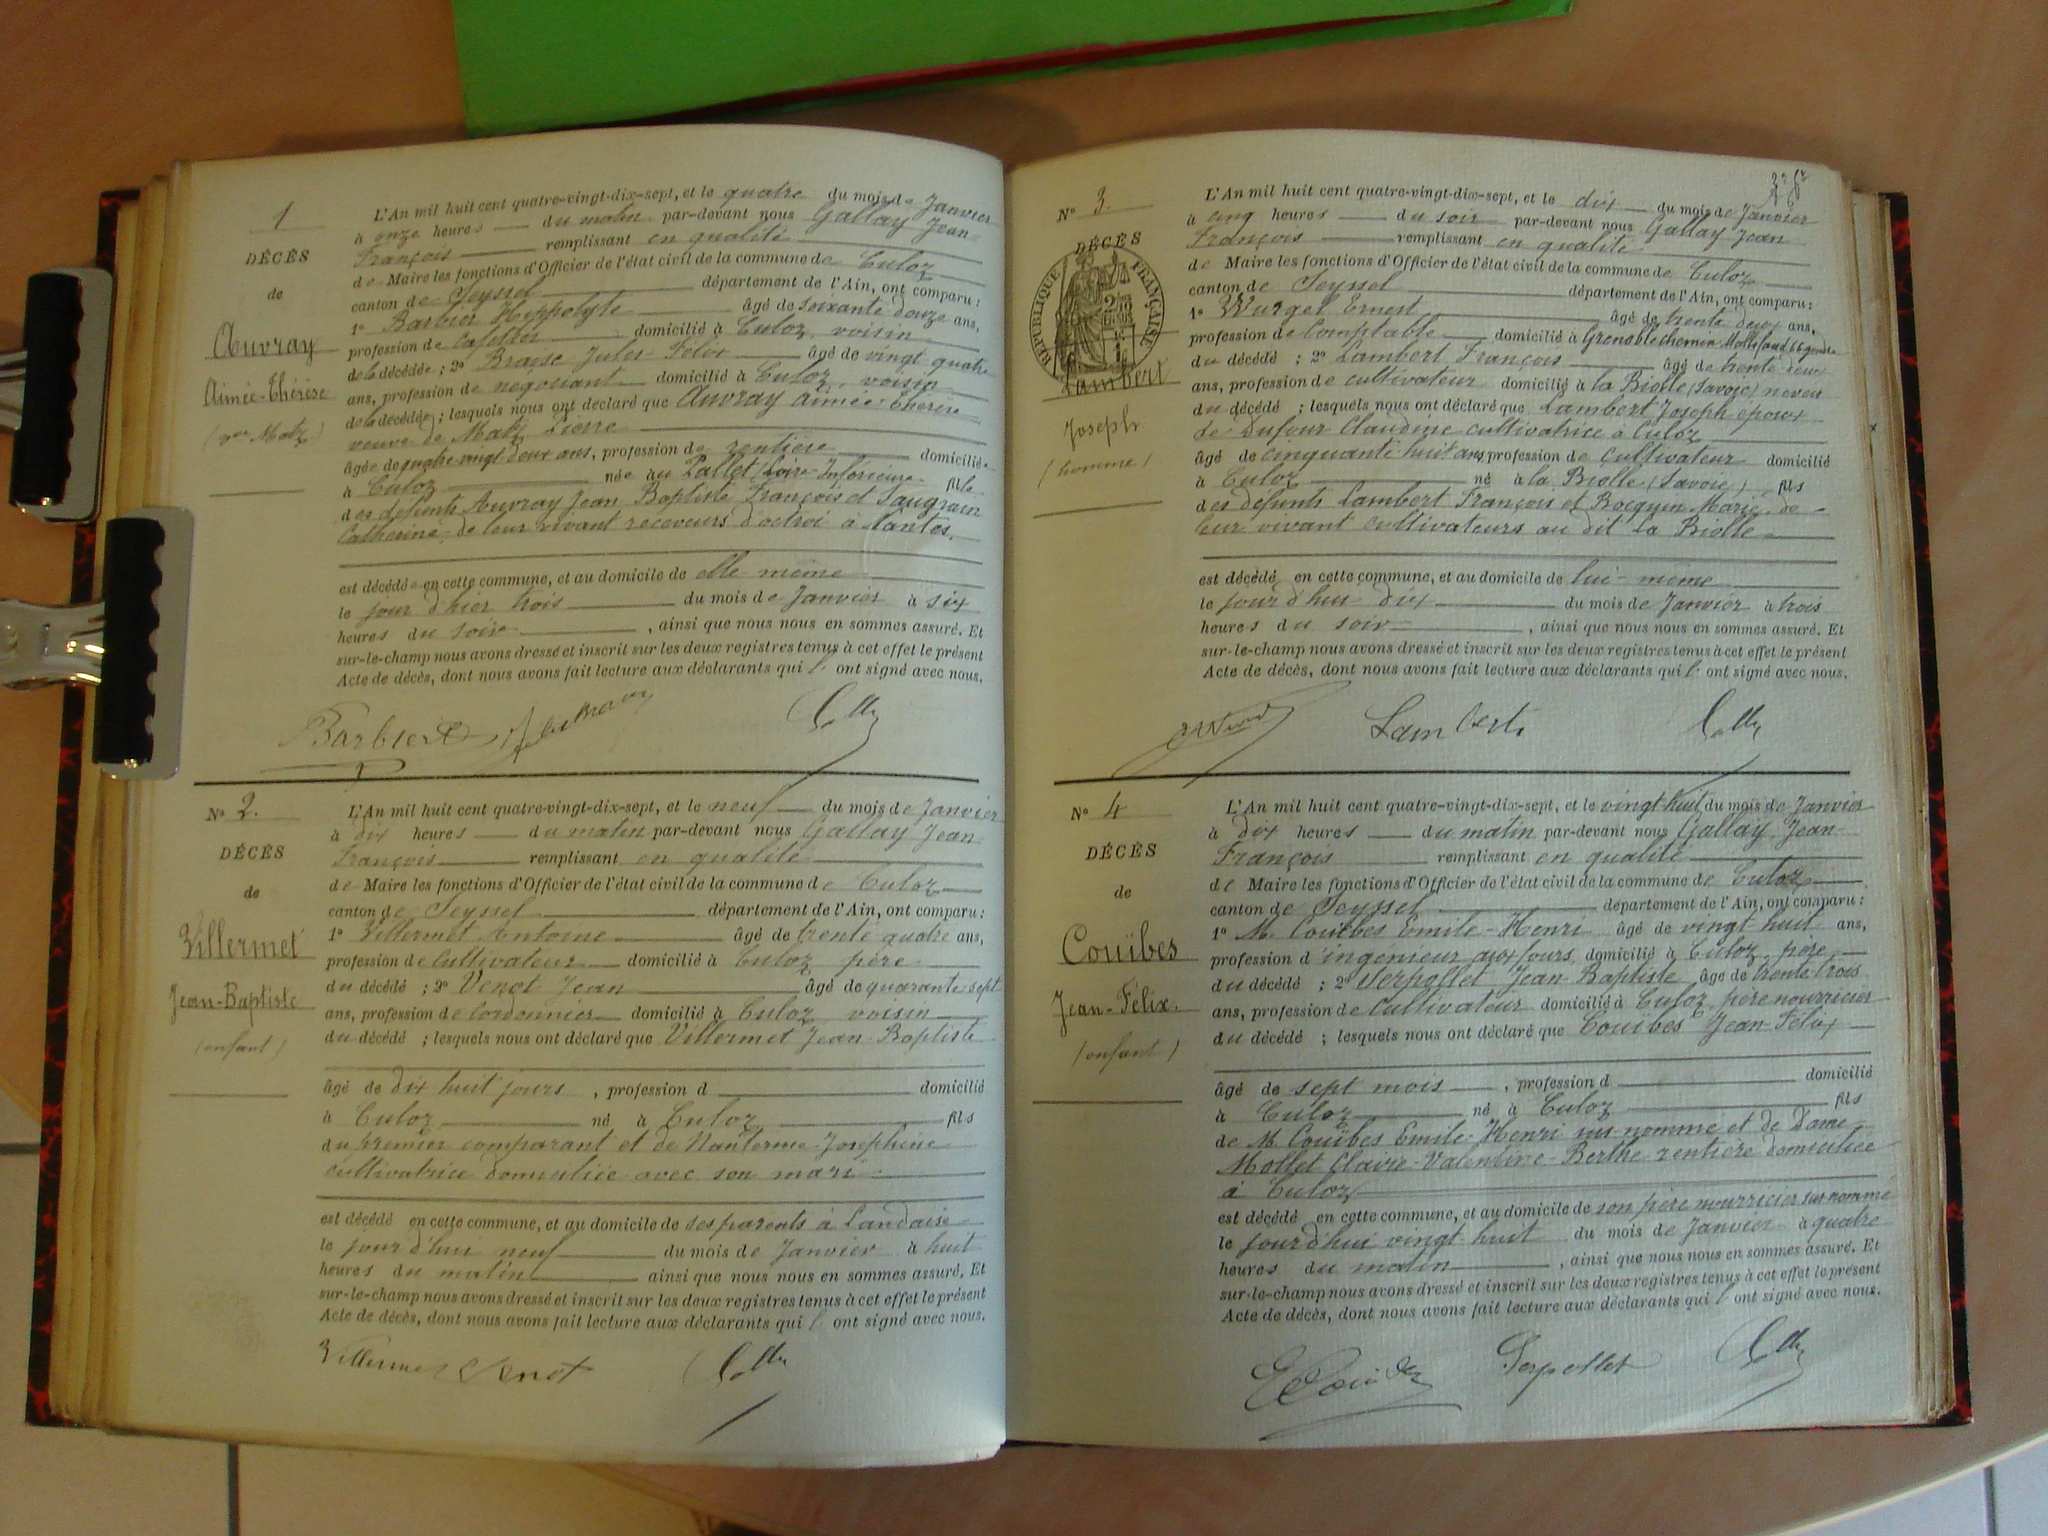 1
DÉCÈS
de
Auvray
Aimée-Thérèse
(vve Matz)
L'An mil huit cent quatre-vingt-dix-sept, et le quatre du mois de Janvier
à onze heures du matin par-devant nous Gallay Jean-
François remplissant en qualité
de Maire les fonctions d'Officier de l'état civil de la commune de Culoz
canton de Seyssel département de l'Ain, ont comparu :
1º Barbier Hippolyte âgé de soixante douze ans,
profession de cafetier domicilié à Culoz voisin
de la décédée ; 2º Jules Félix âgé de vingt quatre
ans, profession de négociant domicilié à Culoz, voisin
de la décédée ; lesquels nous ont déclaré que Auvray Aimée Thérèse
veuve de Matz Pierre
âgée de quatre-vingt deux ans, profession de rentière domiciliée
à Culoz née au Pallet Loire-Inférieure fille
des défunts Auvray Jean Baptiste François et Saugrain
Catherine, de leur vivant receveurs d'octroi à Nantes.
est décédée en cette commune, et au domicile de elle-même
le jour d'hier trois du mois de Janvier à six
heures du soir, ainsi que nous nous en sommes assuré. Et
sur-le-champ nous avons dressé et inscrit sur les deux registres tenus à cet effet le présent
Acte de décès, dont nous avons fait lecture aux déclarants qui l' ont signé avec nous.
Barbier
Nº 2.
DÉCÈS
de
Villermet
Jean-Baptiste
(enfant)
L'An mil huit cent quatre-vingt-dix-sept, et le neuf du mois de Janvier
à dix heures du matin par-devant nous Gallay Jean-
François remplissant en qualité
de Maire les fonctions d'Officier de l'état civil de la commune de Culoz
canton de Seyssel département de l'Ain, ont comparu :
1º Villermet Antoine âgé de trente quatre ans,
profession de cultivateur domicilié à Culoz père
du décédé ; 2º Venot Jean âgé de quarante sept
ans, profession de cordonnier domicilié à Culoz voisin
du décédé ; lesquels nous ont déclaré que Villermet Jean-Baptiste
âgé de dix huit jours, profession d domicilié
à Culoz né à Culoz fils
du premier comparant et de Nanterme Josephine
cultivatrice domiciliée avec son mari
est décédé en cette commune, et au domicile de ses parents à Landaise
le jour d'hui neuf du mois de Janvier à huit
heures du matin ainsi que nous nous en sommes assuré. Et
sur-le-champ nous avons dressé et inscrit sur les deux registres tenus à cet effet le présent
Acte de décès, dont nous avons fait lecture aux déclarants qui l' ont signé avec nous.
Villermet Venot
Nº 3.
DÉCÈS
RÉPUBLIQUE FRANÇAISE
Lambert
Joseph
(homme)
L'An mil huit cent quatre-vingt-dix-sept, et le dix du mois de Janvier
à cinq heures du soir par-devant nous Gallay Jean
François remplissant en qualité
de Maire les fonctions d'Officier de l'état civil de la commune de Culoz
canton de Seyssel département de l'Ain, ont comparu :
1º Wurgel Ernest âgé de trente deux ans,
profession de Comptable domicilié à Grenoble chemin
du décédé ; 2º Lambert François âgé de trente deux
ans, profession de cultivateur domicilié à la Biolle (Savoie) neveu
du décédé ; lesquels nous ont déclaré que Lambert Joseph époux
de Dufour Claudine cultivatrice à Culoz
âgé de cinquante huit ans profession de cultivateur domicilié
à Culoz né à la Biolle (Savoie) fils
des défunts Lambert François et Bocquin Marie, de
leur vivant cultivateurs au dit La Biolle
est décédé en cette commune, et au domicile de lui-même
le jour d'hui dix du mois de Janvier à trois
heures du soir, ainsi que nous nous en sommes assuré. Et
sur-le-champ nous avons dressé et inscrit sur les deux registres tenus à cet effet le présent
Acte de décès, dont nous avons fait lecture aux déclarants qui l' ont signé avec nous.
Lambert
Nº 4
DÉCÈS
de
Couïbes
Jean-Félix.
(enfant)
L'An mil huit cent quatre-vingt-dix-sept, et le vingt-huit du mois de Janvier
à dix heures du matin par-devant nous Gallay Jean-
François remplissant en qualité
de Maire les fonctions d'Officier de l'état civil de la commune de Culoz
canton de Seyssel département de l'Ain, ont comparu :
1º M. Couïbes Emile-Henri âgé de vingt huit ans,
profession d'ingénieur aux fours domicilié à Culoz, père
du décédé ; 2º Serpollet Jean-Baptiste âgé de trente trois
ans, profession de cultivateur domicilié à Culoz, père nourricier
du décédé ; lesquels nous ont déclaré que Couïbes Jean-Félix
âgé de sept mois, profession d domicilié
à Culoz né à Culoz fils
de M. Couïbes Emile-Henri sus-nommé et de Dame
Mollet Claire-Valentine-Berthe rentière domiciliée
à Culoz
est décédé en cette commune, et au domicile de son père nourricier sus-nommé
le jour d'hui vingt huit du mois de Janvier à quatre
heures du matin, ainsi que nous nous en sommes assuré. Et
sur-le-champ nous avons dressé et inscrit sur les deux registres tenus à cet effet le présent
Acte de décès, dont nous avons fait lecture aux déclarants qui l' ont signé avec nous.
Serpollet